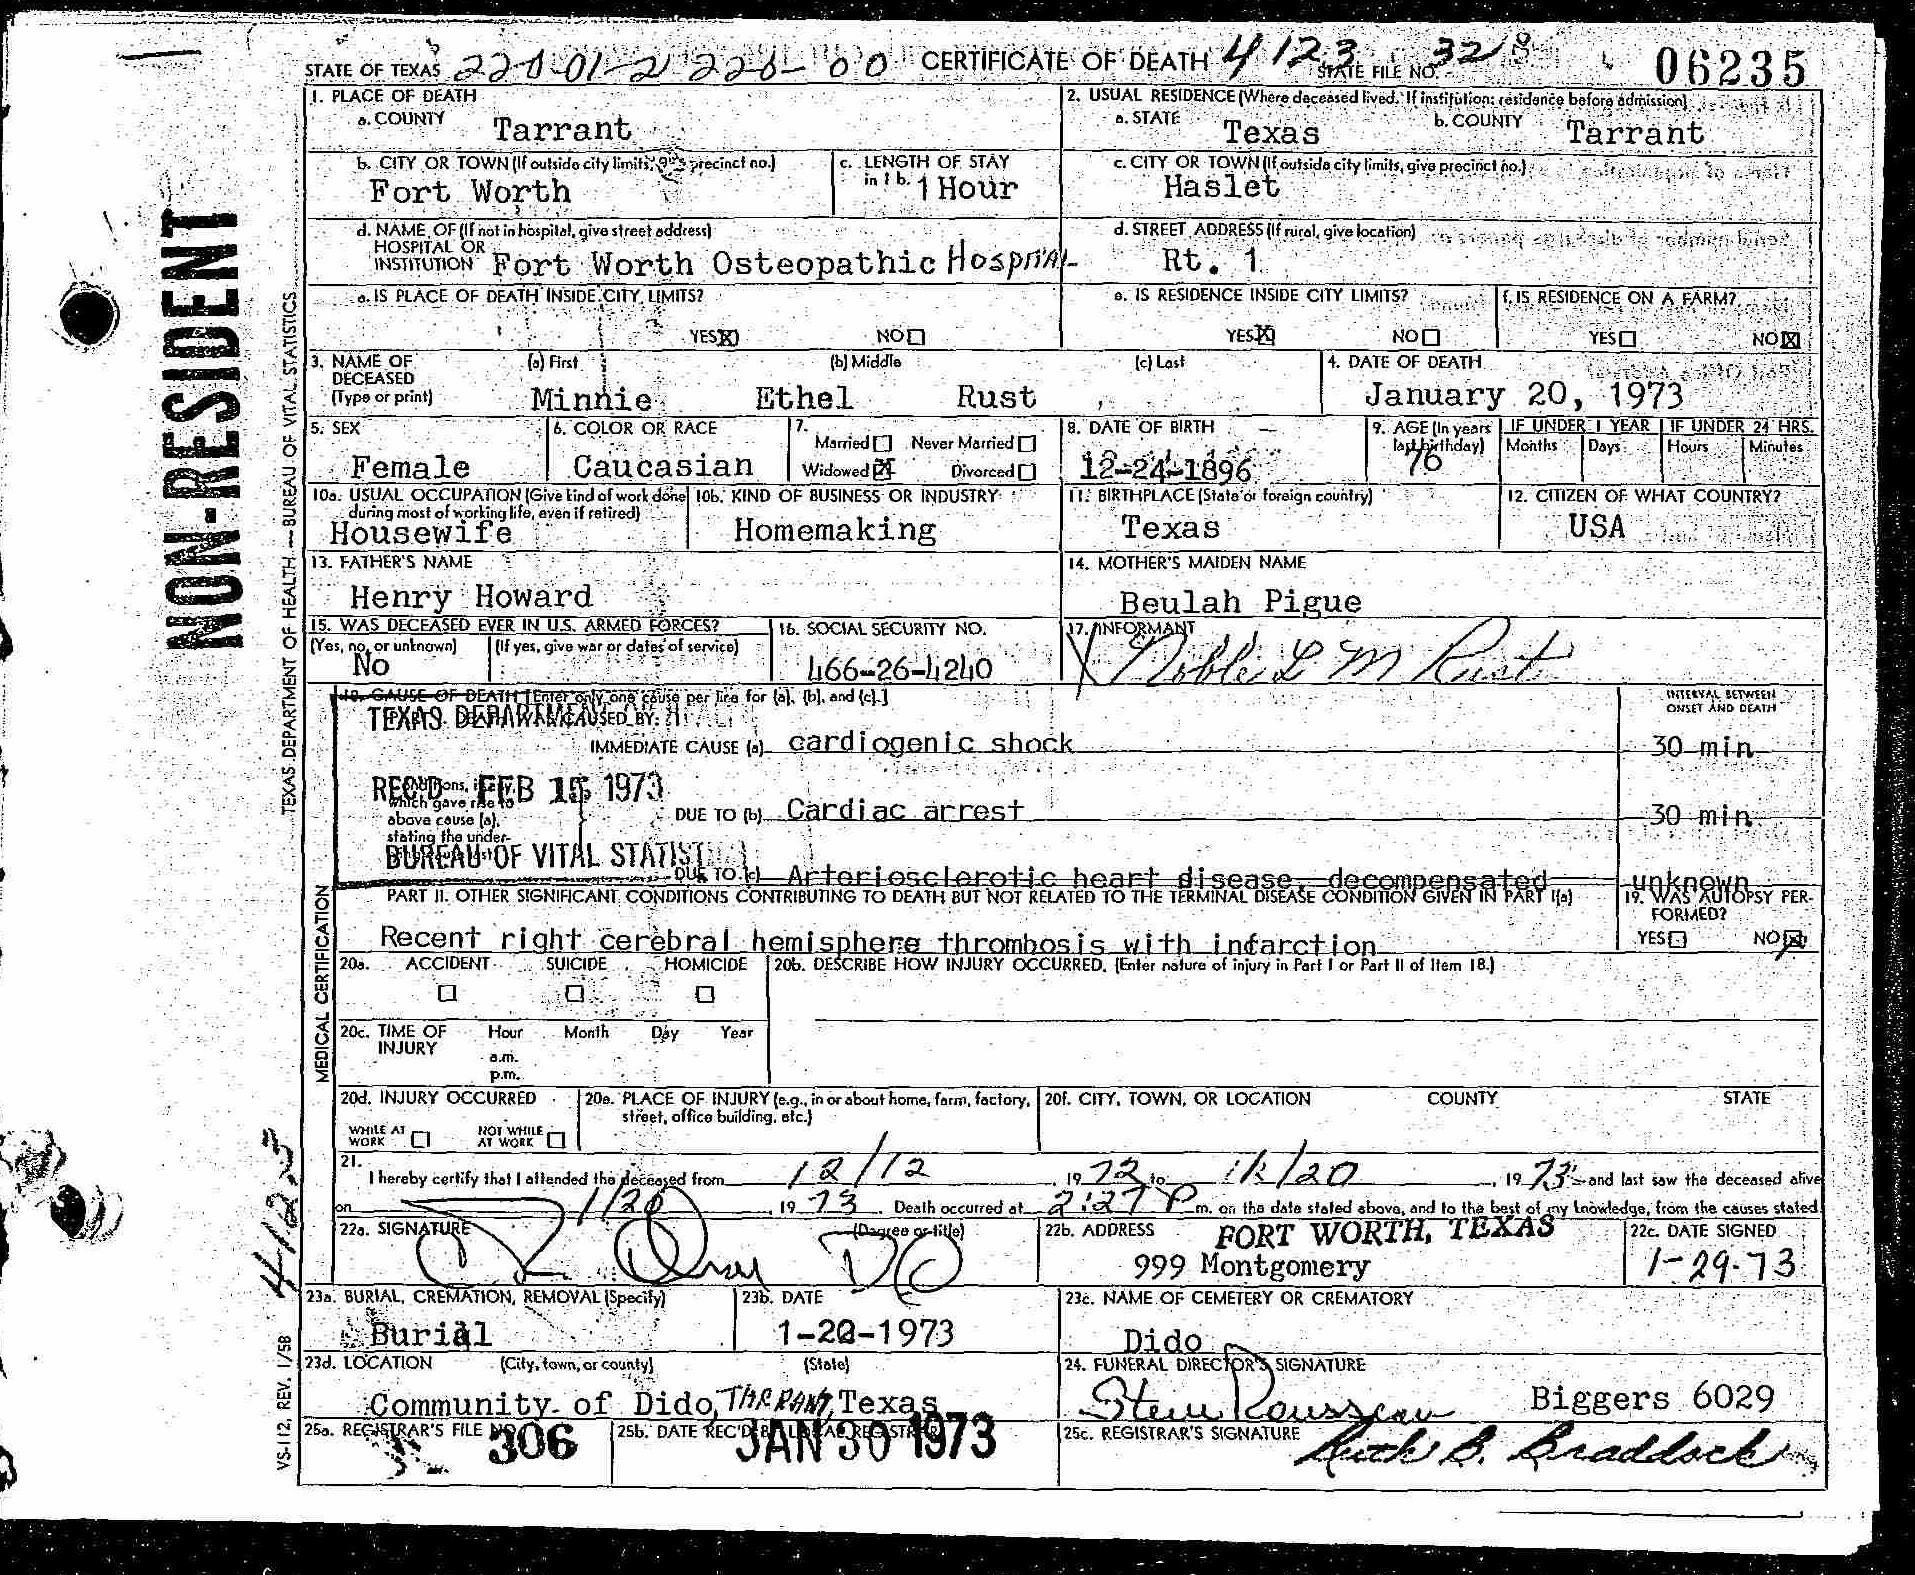 STATE OF TEXAS 220-01-2 220-00 CERTIFICATE OF DEATH 4123 STATE FILE NO. 32 06235
1. PLACE OF DEATH
a. COUNTY Tarrant
2. USUAL RESIDENCE (Where deceased lived. If institution: residence before admission)
a. STATE Texas b. COUNTY Tarrant
b. CITY OR TOWN (If outside city limits, give precinct no.)
Fort Worth
c. LENGTH OF STAY
in 1 b. 1 Hour
c. CITY OR TOWN (If outside city limits, give precinct no.)
Haslet
d. NAME OF (If not in hospital, give street address)
HOSPITAL OR
INSTITUTION Fort Worth Osteopathic Hospital
d. STREET ADDRESS (If rural, give location)
Rt. 1
e. IS PLACE OF DEATH INSIDE CITY LIMITS?
YES X NO
e. IS RESIDENCE INSIDE CITY LIMITS?
YES X NO
f. IS RESIDENCE ON A FARM?
YES NO X
3. NAME OF
DECEASED
(Type or print)
(a) First (b) Middle (c) Last
Minnie Ethel Rust
4. DATE OF DEATH
January 20, 1973
5. SEX
Female
6. COLOR OR RACE
Caucasian
7.
Married Never Married
Widowed X Divorced
8. DATE OF BIRTH
12-24-1896
9. AGE (In years
last birthday)
76
IF UNDER 1 YEAR IF UNDER 24 HRS.
Months Days Hours Minutes
10a. USUAL OCCUPATION (Give kind of work done
during most of working life, even if retired)
Housewife
10b. KIND OF BUSINESS OR INDUSTRY
Homemaking
11. BIRTHPLACE (State or foreign country)
Texas
12. CITIZEN OF WHAT COUNTRY?
USA
13. FATHER'S NAME
Henry Howard
14. MOTHER'S MAIDEN NAME
Beulah Pigue
15. WAS DECEASED EVER IN U.S. ARMED FORCES?
(Yes, no, or unknown) (If yes, give war or dates of service)
No
16. SOCIAL SECURITY NO.
466-26-4240
17. INFORMANT
X Noble L M Rust
18. CAUSE OF DEATH [Enter only one cause per line for (a), (b), and (c).]
INTERVAL BETWEEN
ONSET AND DEATH
TEXAS DEPARTMENT
CAUSED BY:
IMMEDIATE CAUSE (a) cardiogenic shock 30 min
REC'D FEB 15 1973
which gave rise to
above cause (a),
stating the under-
DUE TO (b) Cardiac arrest 30 min.
BUREAU OF VITAL STATIST
DUE TO (c) Arteriosclerotic heart disease, decompensated unknown
PART II. OTHER SIGNIFICANT CONDITIONS CONTRIBUTING TO DEATH BUT NOT RELATED TO THE TERMINAL DISEASE CONDITION GIVEN IN PART I(a)
Recent right cerebral hemisphere thrombosis with infarction
19. WAS AUTOPSY PER-
FORMED?
YES NO X
20a. ACCIDENT SUICIDE HOMICIDE
20b. DESCRIBE HOW INJURY OCCURRED. (Enter nature of injury in Part I or Part II of Item 18.)
20c. TIME OF
INJURY
Hour Month Day Year
a.m.
p.m.
20d. INJURY OCCURRED
WHILE AT
WORK
NOT WHILE
AT WORK
20e. PLACE OF INJURY (e.g., in or about home, farm, factory,
street, office building, etc.)
20f. CITY, TOWN, OR LOCATION COUNTY STATE
21.
I hereby certify that I attended the deceased from 12/12, 19 72 to 1/20, 19 73 and last saw the deceased alive
on 1/20 19 73. Death occurred at 2:27 P m. on the date stated above, and to the best of my knowledge, from the causes stated
22a. SIGNATURE (Degree or title)
DO
22b. ADDRESS FORT WORTH, TEXAS
999 Montgomery
22c. DATE SIGNED
1-29-73
23a. BURIAL, CREMATION, REMOVAL (Specify)
Burial
23b. DATE
1-22-1973
23c. NAME OF CEMETERY OR CREMATORY
Dido
23d. LOCATION (City, town, or county) (State)
Community of Dido, TARRANT, Texas
24. FUNERAL DIRECTOR'S SIGNATURE
Steve Rousseau Biggers 6029
25a. REGISTRAR'S FILE NO. 306
25b. DATE REC'D BY LOCAL REGISTRAR
JAN 30 1973
25c. REGISTRAR'S SIGNATURE
Ruth B. Braddock
NON-RESIDENT
TEXAS DEPARTMENT OF HEALTH — BUREAU OF VITAL STATISTICS
MEDICAL CERTIFICATION
4123
VS-112, REV. 1/58